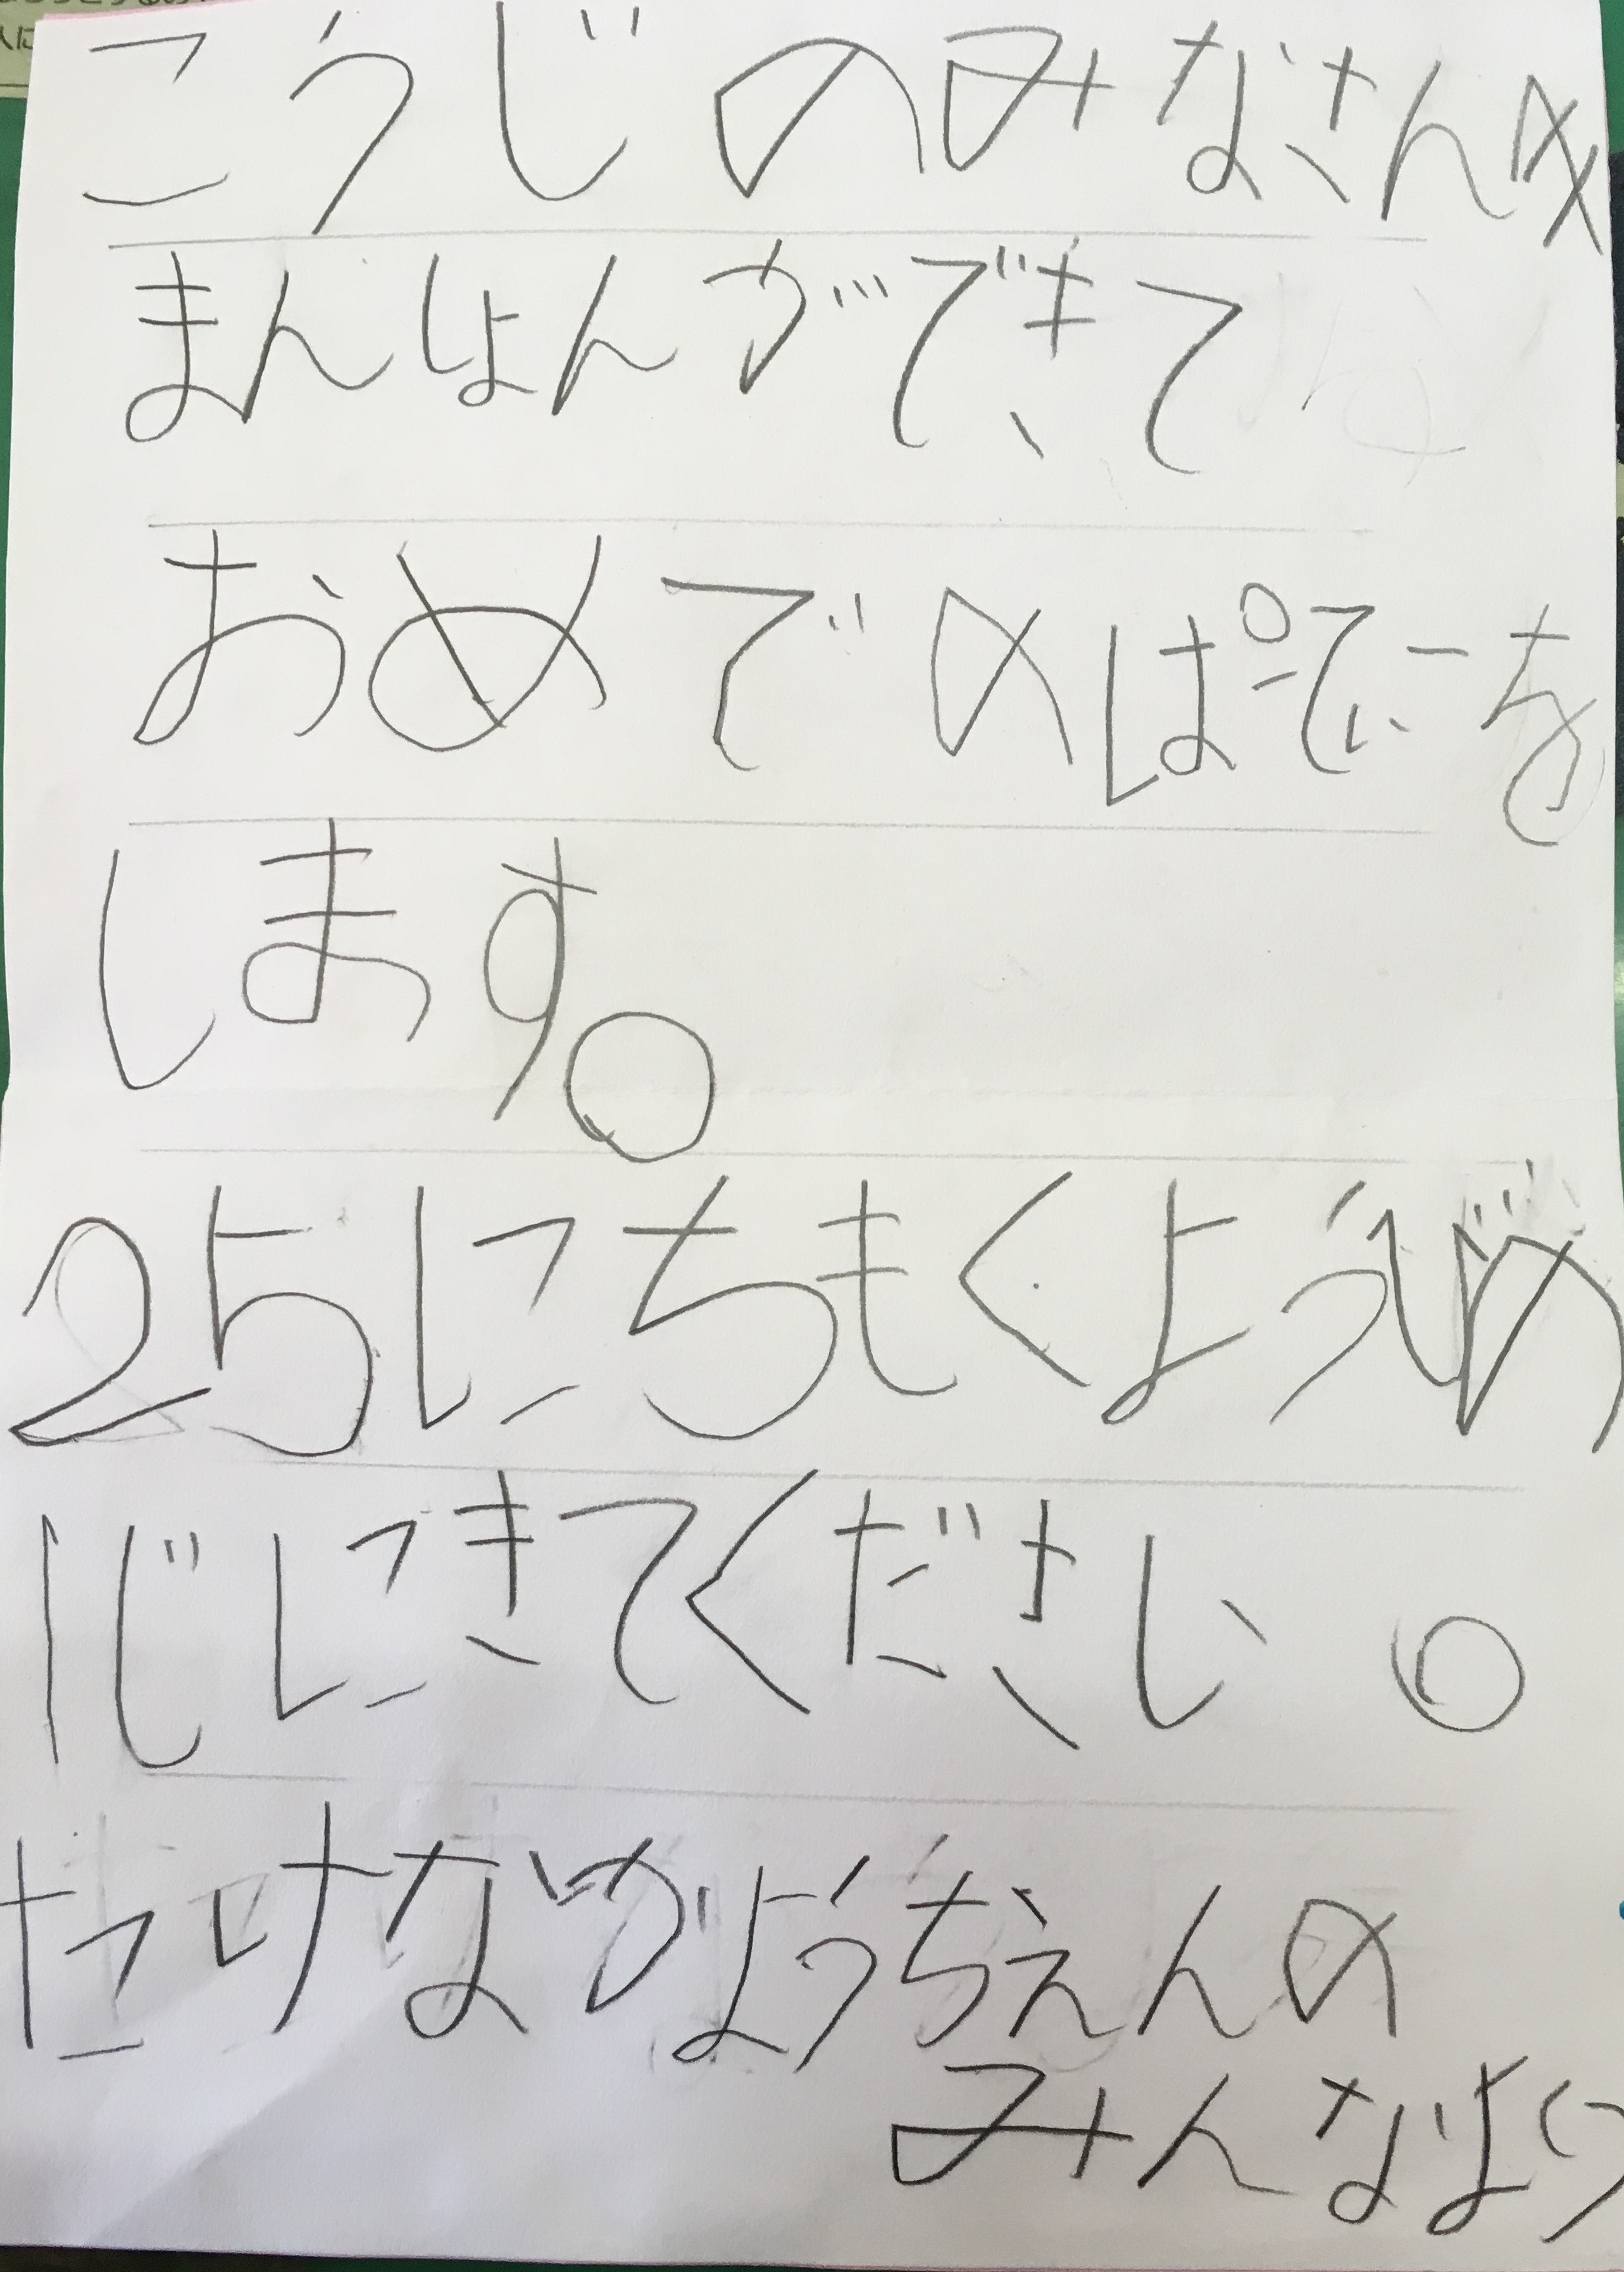 こうじのみなさんへ
まんしょんができて
おめでのぱーてぃーを
します。
25にちもくようびの
1じにきてください。
たけなかようちえんの
みんなより